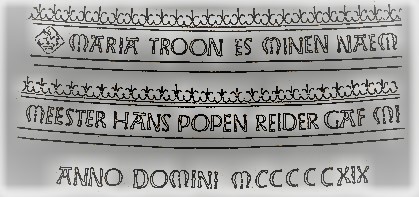 MARIA TROON ES MINEN NAEM
MEESTER HANS POPEN REIDER GAF MI
ANNO DOMINI MCCCCCXIX